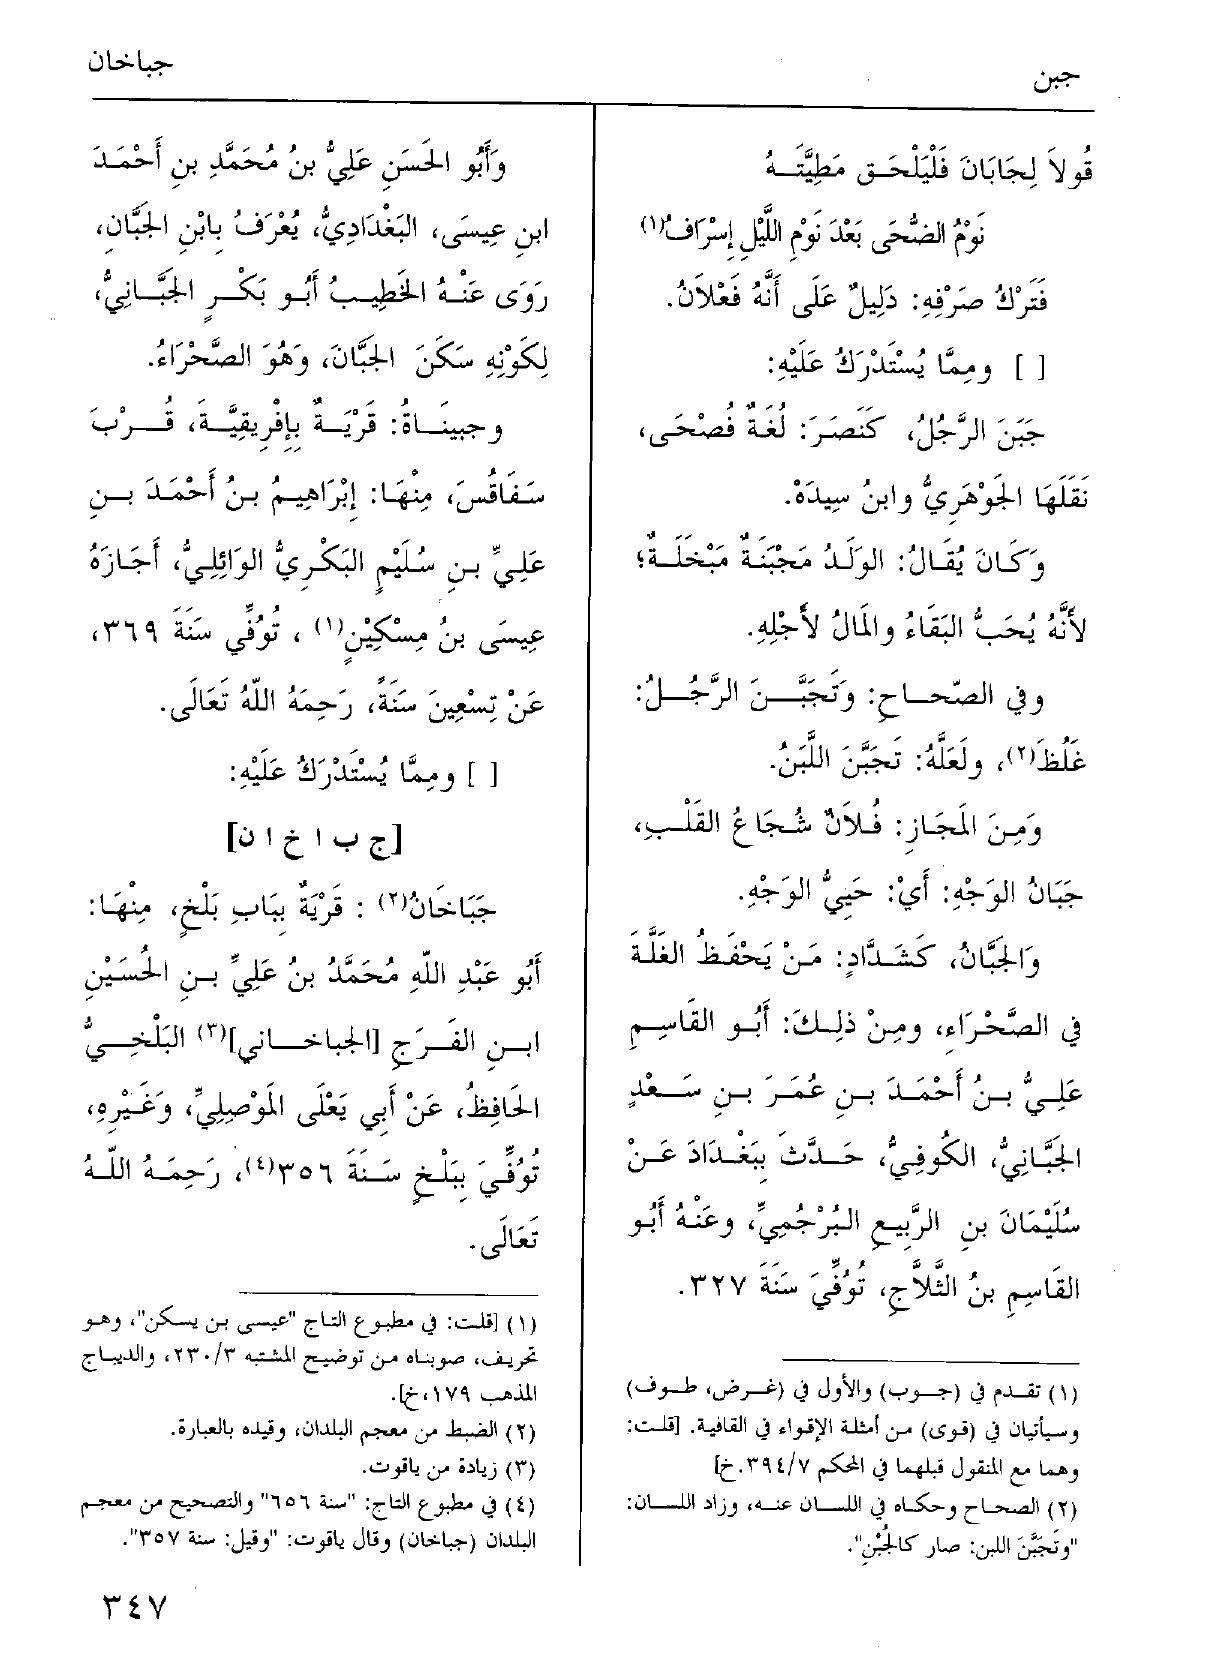 جبن
جباخان
قُولاَ لِجَابَانَ فَلْيَلْحَـق مَطِيَّتَـهُ
نَوْمُ الضُّحَى بَعْدَ نَوْمِ اللَّيْلِ إِسْرَافُ(١)
فَتَرْكُ صَرْفِهِ: دَلِيلٌ عَلَى أَنَّهُ فَعْلاَنُ.
[ ] ومِمَّا يُسْتَدْرَكُ عَلَيْهِ:
جَبَنَ الرَّجُلُ، كَنَصَرَ: لُغَةٌ فُصْحَى،
نَقَلَهَا الجَوْهَرِيُّ وابنُ سِيدَه.
وَكَانَ يُقَالُ: الوَلَدُ مَجْبَنَةٌ مَبْخَلَـةٌ؛
لأَنَّهُ يُحَبُّ البَقَاءُ والمَالُ لأَجْلِهِ.
وفي الصِّحَـاحِ: وتَجَبَّـنَ الرَّجُـلُ:
غَلُظَ(٢)، ولَعَلَّهُ: تَجَبَّنَ اللَّبَنُ.
وَمِنَ المَجَازِ: فُـلاَنٌ شُجَاعُ القَلْـبِ،
جَبَانُ الوَجْهِ: أَيْ: حَيِيُّ الوَجْهِ.
وَالجَبَّانُ، كَشَدَّادٍ: مَنْ يَحْفَظُ الغَلَّةَ
في الصَّحْرَاءِ، ومِنْ ذلِـكَ: أَبُـو القَاسِـمِ
عَلِيُّ بـنُ أَحْمَـدَ بـنِ عُمَـرَ بنِ سَـعْدٍ
الجَبَّـانِيُّ، الكُوفِيُّ، حَـدَّثَ بِبَغْدَادَ عَـنْ
سُلَيْمَانَ بنِ الرَّبِيعِ البُرْجُمِيِّ، وعَنْهُ أَبُو
القَاسِمِ بنُ الثَّلاَّجِ، تُوُفِّيَ سَنَةَ ٣٢٧.
(١) تقـدم في (جـوب) والأول في (غـرض، طـوف)
وسيأتيان في (قوى) من أمثلة الإقواء في القافية. [قلت:
وهما مع المنقول قبلهما في المحكم ٣٩٤/٧.خ]
(٢) الصحـاح وحكـاه في اللسـان عنـه، وزاد اللسـان:
"وتَجَبَّنَ اللبن: صار كالجُبْنِ".
وَأَبُو الحَسَنِ عَلِيُّ بنُ مُحَمَّدِ بنِ أَحْمَـدَ
ابنِ عِيسَى، البَغْدَادِيُّ، يُعْرَفُ بِابْنِ الجَبَّانِ،
رَوَى عَنْـهُ الخَطِيـبُ أَبُـو بَكْـرٍ الجَبَّـانِيُّ،
لِكَوْنِهِ سَكَنَ الجَبَّانَ، وَهُوَ الصَّحْرَاءُ.
وجبينَـاةُ: قَرْيَـةٌ بِإِفْرِيقِيَّـةَ، قُـرْبَ
سَفَاقُسَ، مِنْهَـا: إِبْرَاهِيـمُ بـنُ أَحْمَـدَ بـنِ
عَلِيِّ بـنِ سُلَيْمٍ البَكْرِيُّ الوَائِلِيُّ، أَجَازَهُ
عِيسَى بنُ مِسْكِيْنٍ(١) ، تُوُفِّي سَنَةَ ٣٦٩،
عَنْ تِسْعِينَ سَنَةً، رَحِمَهُ اللهُ تَعَالَى.
[ ] ومِمَّا يُسْتَدْرَكُ عَلَيْهِ:
[ج ب ا خ ا ن]
جَبَاخَانُ(٢) : قَرْيَةٌ بِبَابِ بَلْخٍ، مِنْهَـا:
أَبُو عَبْدِ اللهِ مُحَمَّدُ بنُ عَلِيِّ بـنِ الحُسَيْنِ
ابـنِ الفَـرَجِ [الجباخـاني](٣) البَلْخِـيُّ
الحَافِظُ، عَنْ أَبي يَعْلَى المَوْصِلِيِّ، وَغَيْرِهِ،
تُوُفِّيَ بِبَلْخٍ سَـنَةَ ٣٥٦(٤)، رَحِمَـهُ اللـهُ
تَعَالَى.
(١) [قلت: في مطبوع التاج "عيسى بن يسكن"، وهـو
تحريف، صوبناه من توضيح المشتبه ٢٣٠/٣، والديباج
المذهب ١٧٩،خ].
(٢) الضبط من معجم البلدان، وقيده بالعبارة.
(٣) زيادة من ياقوت.
(٤) في مطبوع التاج: "سنة ٦٥٦" والتصحيح من معجم
البلدان (جباخان) وقال ياقوت: "وقيل: سنة ٣٥٧".
٣٤٧